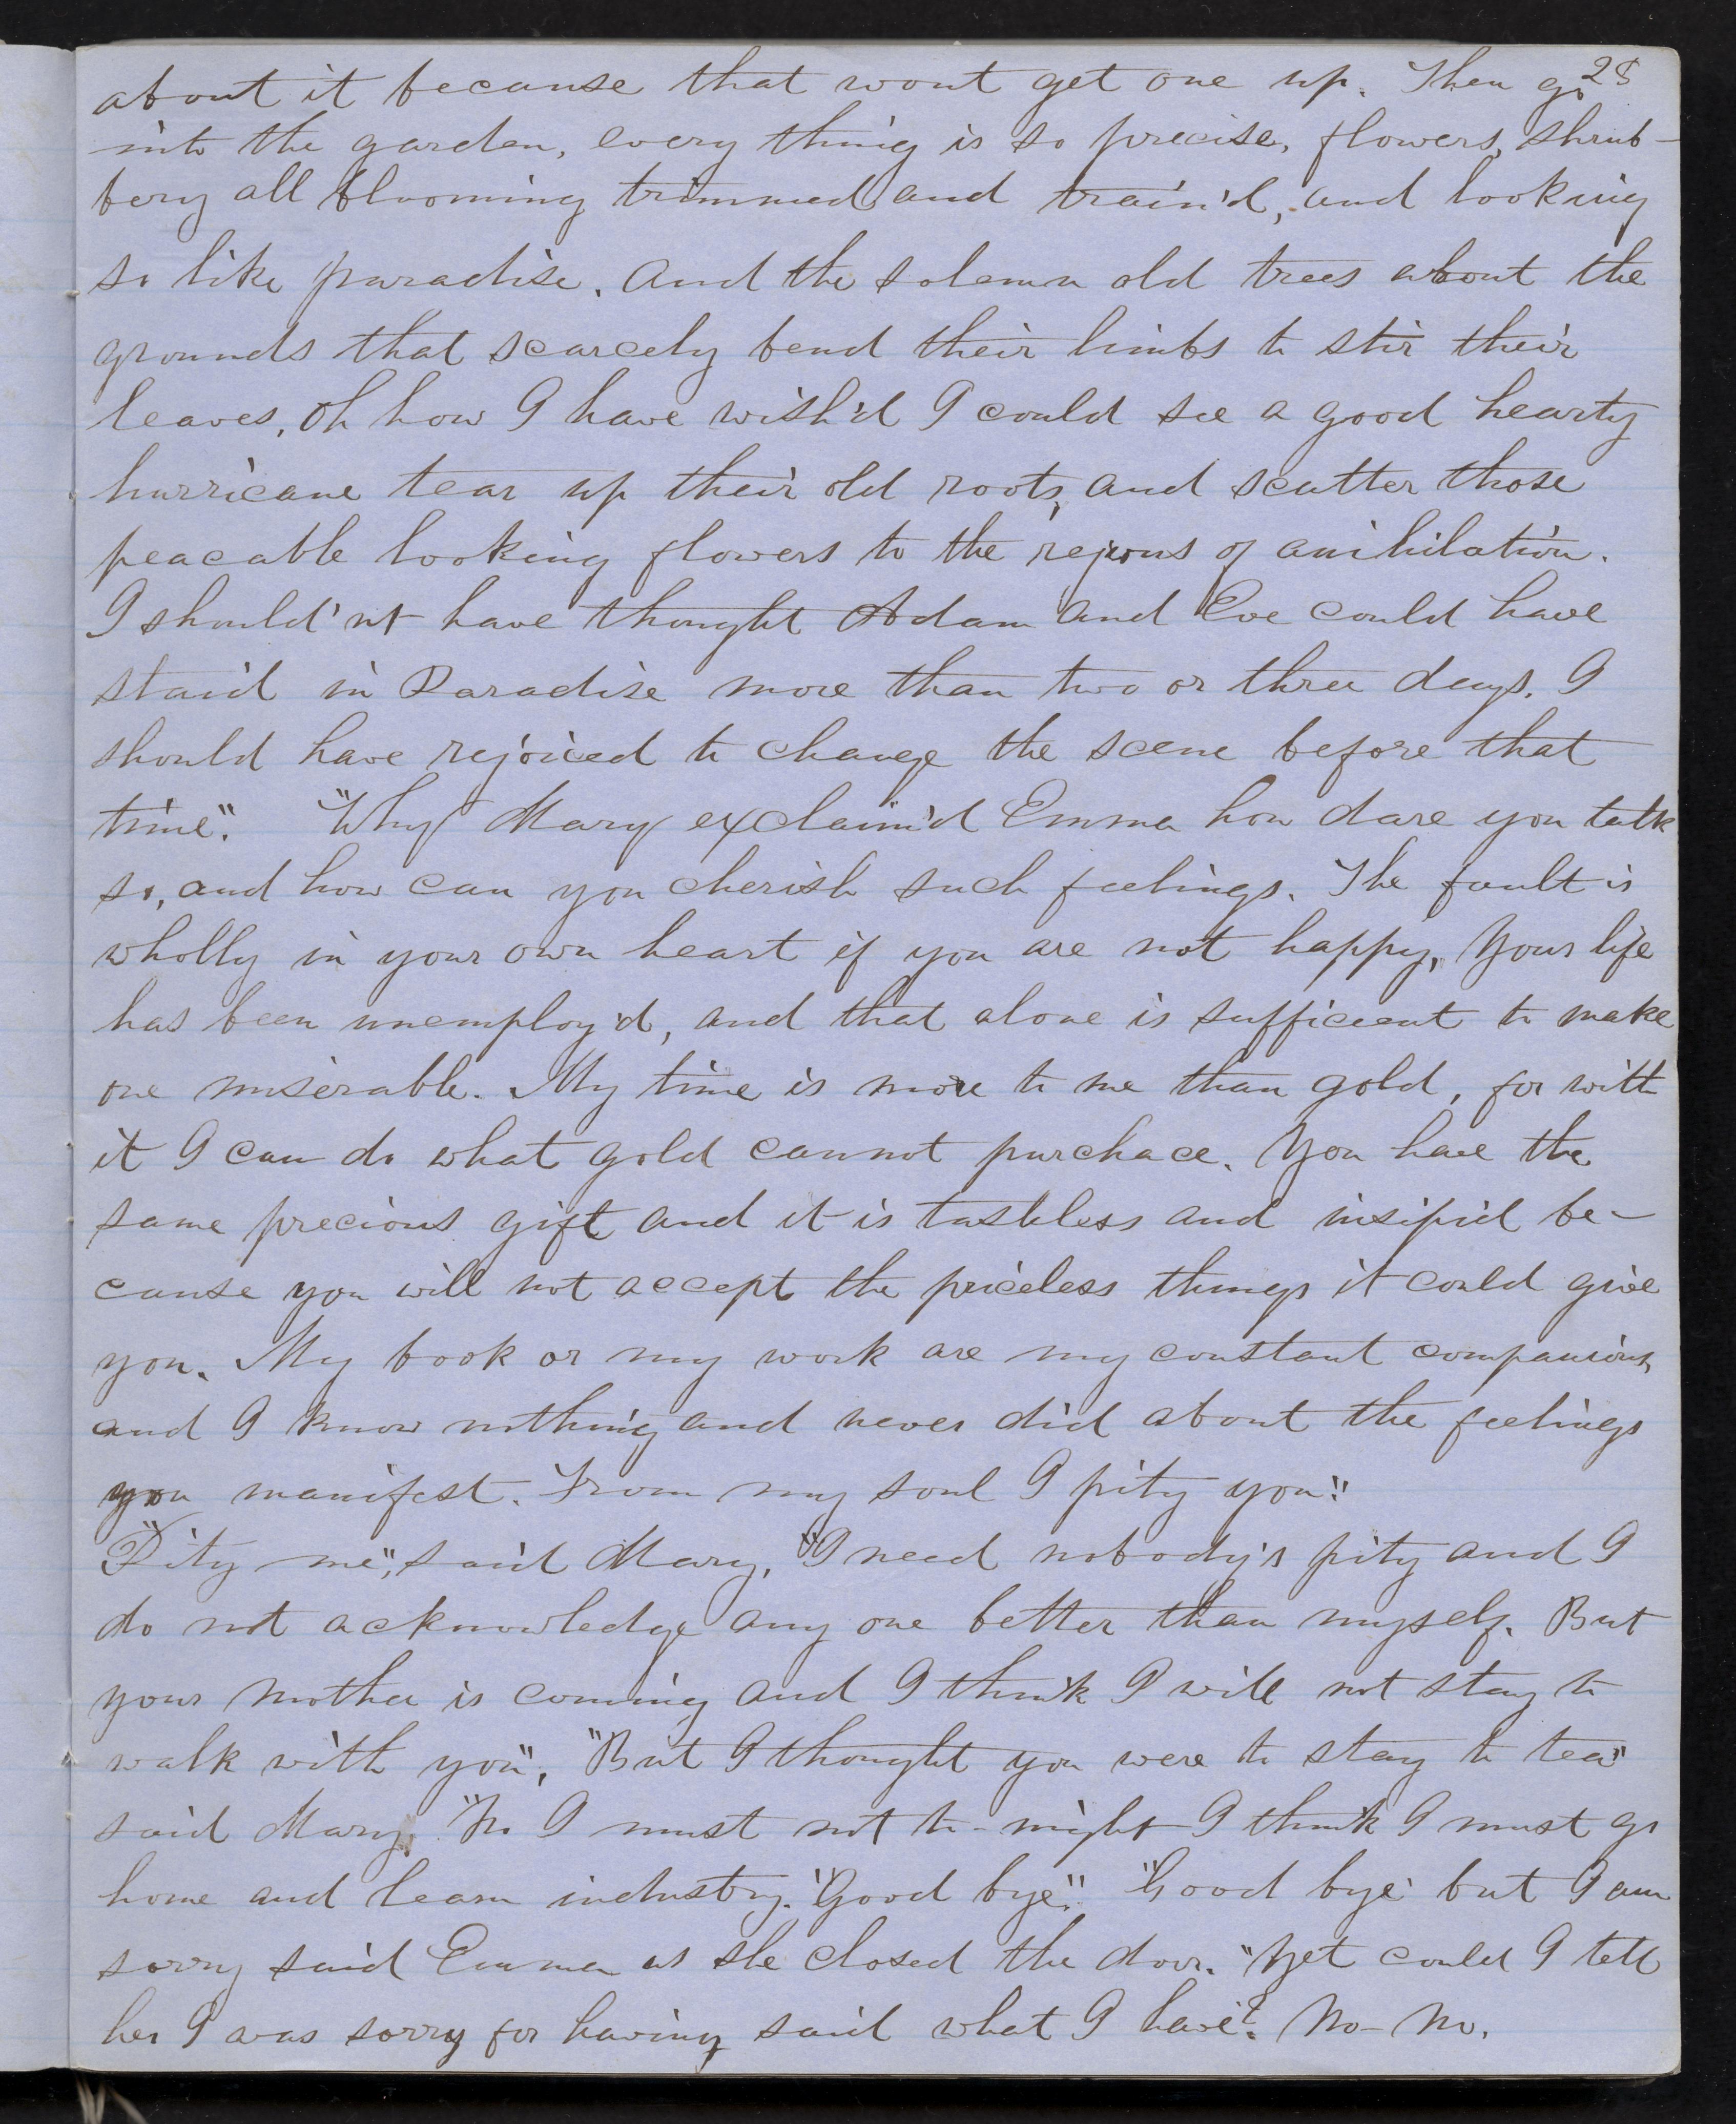 about it because that wont get one up. Then go 28
into the garden, every thing is so precise, flowers, shrub-
bery all blooming trimmed and train'd, and looking
so like paradise. And the solemn old trees about the
grounds that scarcely bend their limbs to stir their
leaves, Oh how I have wish'd I could see a good hearty
hurricane tear up their old roots, and scatter those
peacable looking flowers to the rejions of anihilation.
I should'nt have thought Adam and Eve could have
staid in Paradise more than two or three days. I
should have rejoiced to change the scene before that
time". "Why Mary exclaim'd Emma how dare you talk
so, and how can you cherish such feelings. The fault is
wholly in your own heart if you are not happy, Your life
has been unemploy'd, and that alone is sufficeent to make
one miserable. My time is more to me than gold, for with
it I can do what gold cannot purchace. You have the
same precious gift and it is tasteless and insipid be-
cause you will not accept the priceless things it could give
you. My book or my work are my constant companions,
and I know nothing and never did about the feelings
you manifest. From my soul I pity you".
"Pity me", said Mary, "I need nobody's pity and I
do not acknowledge any one better than myself. But
your mother is coming and I think I will not stay to
walk with you", "But I thought you were to stay to tea"
said Mary, "No I must not to-night I think I must go
home and learn industry. "Good bye". "Good bye but I am
sorry said Emma as she closed the door. "Yet could I tell
her I was sorry for having said what I have? No- No.